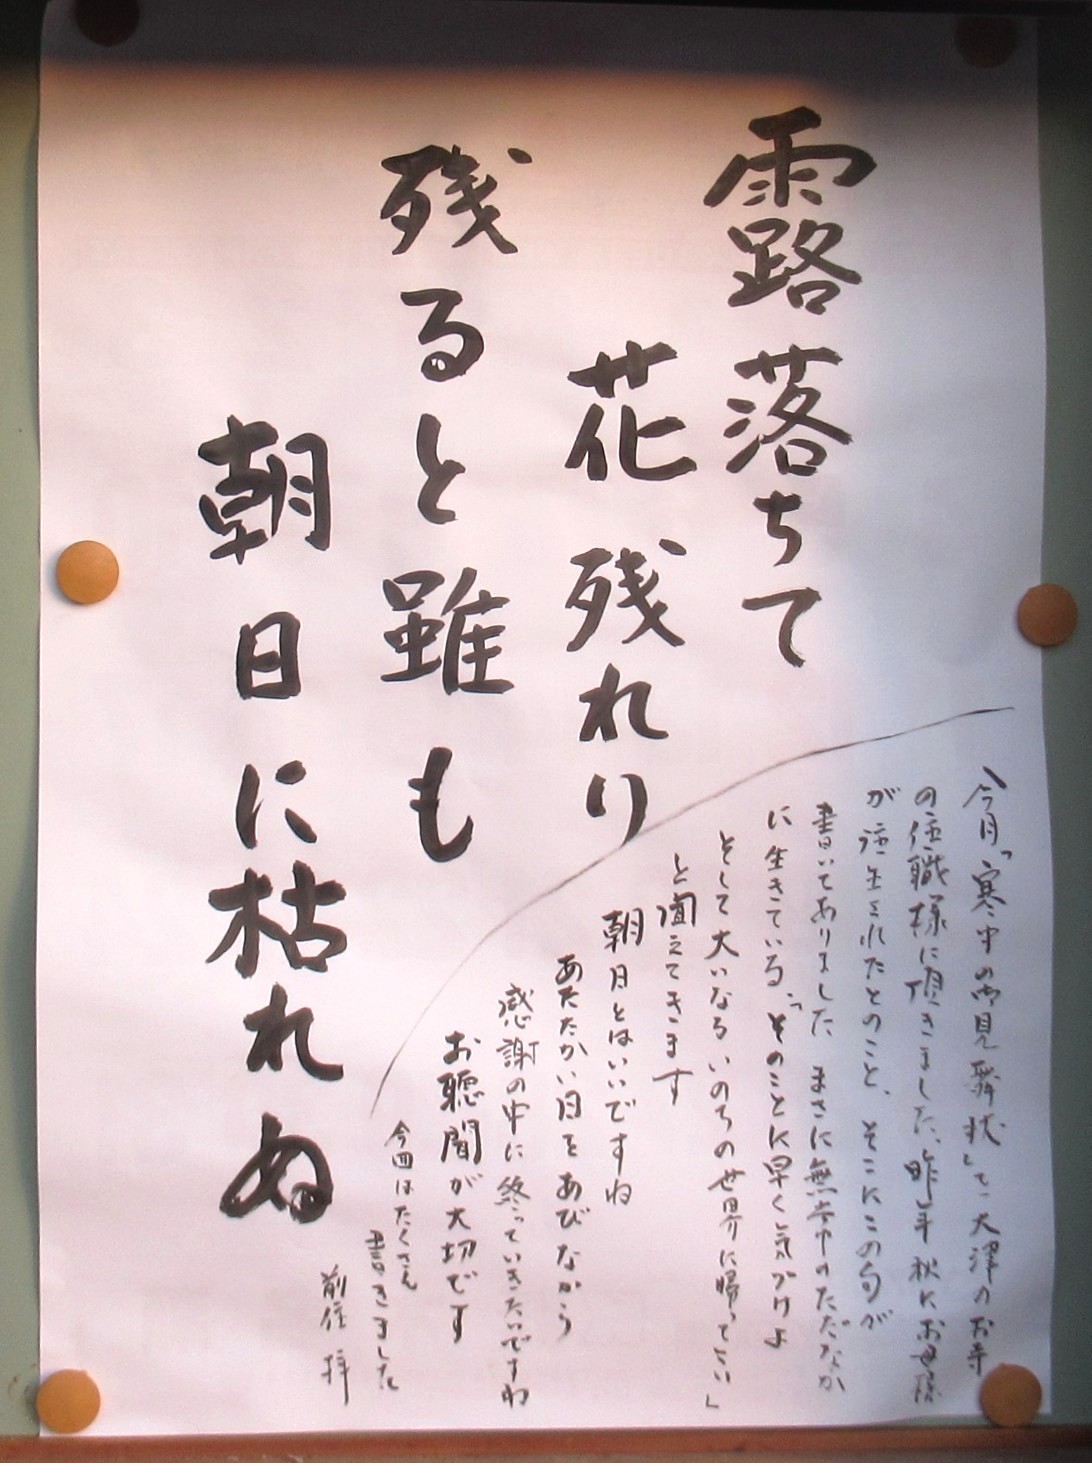 露落ちて
花残れり
残ると雖も
朝日に枯れぬ
今月「寒中の御見舞状」を大津のお寺
の住職様に頂きました、昨年秋にお母様
が往生されたとのこと、そこにこの句が
書いてありました まさに無常のただなか
に生きている、「そのことに早く気づけよ
そして大いなるいのちの世界に帰ってこい」
と聞えてきます
朝日とはいいですね
あたたかい日をあびながら
感謝の中に終っていきたいですね
お聴聞が大切です
今回はたくさん
書きました
前住 拝